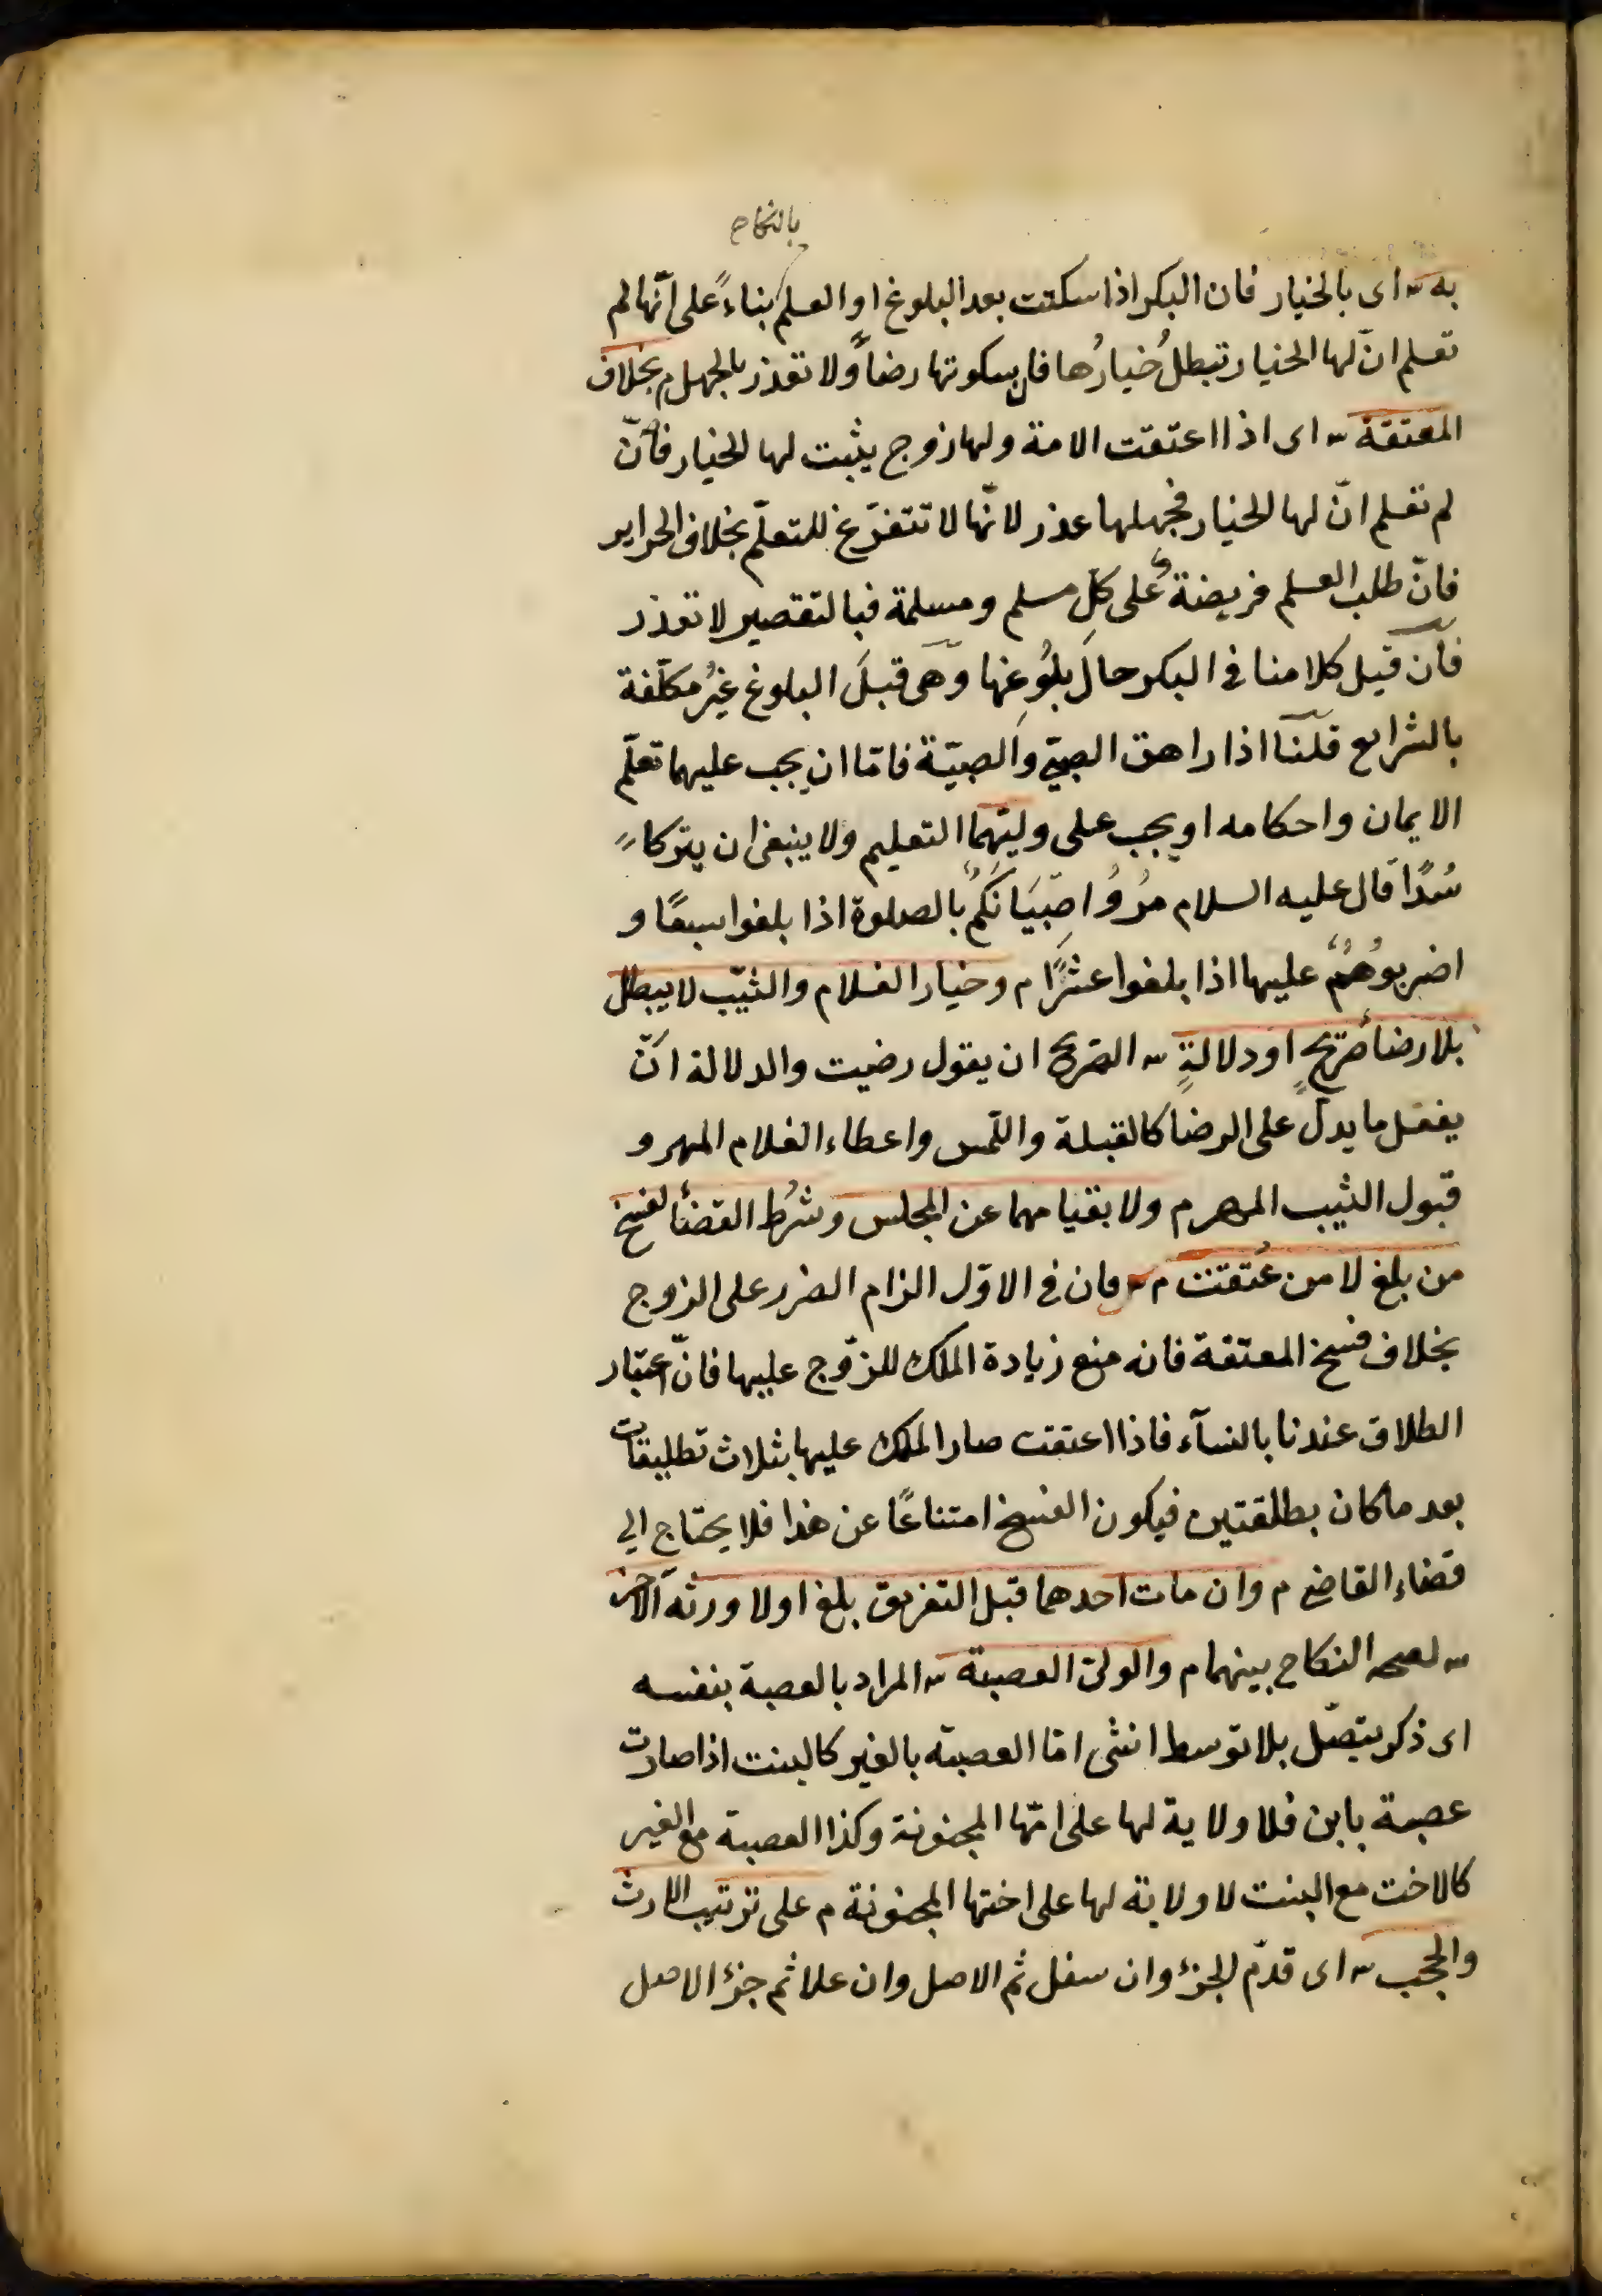 بالنكاح
به ش اى بالخيار فان البكر اذا سكتت بعد البلوغ او العلم بناءً على انّها لم
تعلم انّ لها الخيار تبطلُ خيارُها فان سكوتها رضاً ولا تعذر بالجهل م بخلاف
المعتقة ش اى اذا اعتقت الامة ولها زوج يثبت لها الخيار فأنّ
لم تعلم انّ لها الخيار فجهلها عذر لانّها لا تتفرّغ للتعلّم بخلاف الحراير
فانّ طلب العلم فريضة على كلّ مسلم ومسلمة فبالتقصير لا تعذر
فان قيل كلامنا فى البكر حالَ بلُوغِها وهى قبلَ البلوغ غيرُ مكلّفة
بالشرايع قلنا اذا راهق الصبىّ والصبيّة فامّا ان يجب عليهما تعلّم
الايمان واحكامه او يجب على وليّهما التعليم ولا ينبغى ان يتركا
سُدًا قال عليه السلام مُرُوُا صِبْيَانَكُمْ بالصلوة اذا بلغوا سبعًا و
اضربوُهُمْ عليها اذا بلغوا عشرًا م وخيار الغلام والثيّب لا يبطل
بلا رضأ صريحٍ او دلالةٍ ش الصريح ان يقول رضيت والدلالة انّ
يفعل ما يدلّ على الرضا كالقبلة واللّمس واعطاء الغلام المهر و
قبول الثيب المهر م ولا بقيامهما عن المجلس وشرُط القضأ لفسخ
من بلغ لا من عُتقت م ش فان فى الاوّل الزام الضرر على الزوج
بخلاف فسخ المعتقة فانه منع زيادة الملك للزّوج عليها فانّ اعتبار
الطلاق عندنا بالنسآء فاذا اعتقت صار الملك عليها بثلاث تطليقات
بعد ما كان بطلقتين فيكون الفسخ امتناعًا عن هذا فلا يحتاج الى
قضاء القاضى م وان مات احدهما قبل التفريق بلغ اولا ورثه الآخر
ش لصحة النكاح بينهما م والولىّ العصبة ش المراد بالعصبة بنفسه
اى ذكر يتصّل بلا توسط انثى امّا العصبة بالغير كالبنت اذا صارت
عصبة بابن فلا ولاية لها على امّها المجنونة وكذا العصبة مع الغير
كالاخت مع البنت لا ولاية لها على اختها المجنونة م على ترتيب الارث
والحجب ش اى قدّم الجزء وان سفل ثم الاصل وان علا ثم جزؤ الاصل